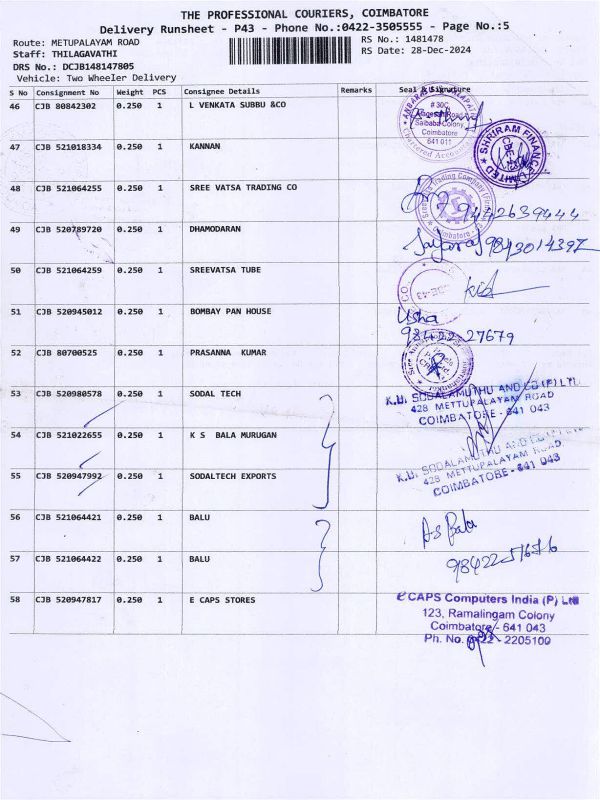 THE PROFESSIONAL COURIERS, COIMBATORE
Delivery Runsheet - P43 - Phone No.:0422-3505555 - Page No.:5
Route: METUPALAYAM ROAD
Staff: THILAGAVATHI
DRS No.: DCJB148147805
Vehicle: Two Wheeler Delivery
RS No.: 1481478
RS Date: 28-Dec-2024
S No Consignment No Weight PCS Consignee Details Remarks Seal & Signature
46 CJB 80842302 0.250 1 L VENKATA SUBBU &CO
# 30C
Saibaba Colony
Coimbatore
641 011
Chartered
47 CJB 521018334 0.250 1 KANNAN
SHRIRAM FINANCE LIMITED
CBE
48 CJB 521064255 0.250 1 SREE VATSA TRADING CO
Trading Company
Coimbatore
9442639444
49 CJB 520789720 0.250 1 DHAMODARAN
9843014397
50 CJB 521064259 0.250 1 SREEVATSA TUBE
51 CJB 520945012 0.250 1 BOMBAY PAN HOUSE
Usha
98422 27679
52 CJB 80700525 0.250 1 PRASANNA KUMAR
53 CJB 520980578 0.250 1 SODAL TECH
K.U. SODALAMUTHU AND CO (P) LTD
428 METTUPALAYAM ROAD
COIMBATORE - 641 043
54 CJB 521022655 0.250 1 K S BALA MURUGAN
K.U. SODALAMUTHU AND
428 METTUPALAYAM ROAD
COIMBATORE - 641 043
55 CJB 520947992 0.250 1 SODALTECH EXPORTS
56 CJB 521064421 0.250 1 BALU
Bala
57 CJB 521064422 0.250 1 BALU
58 CJB 520947817 0.250 1 E CAPS STORES
eCAPS Computers India (P) Ltd
123, Ramalingam Colony
Coimbatore - 641 043
Ph. No. 0422 - 2205100